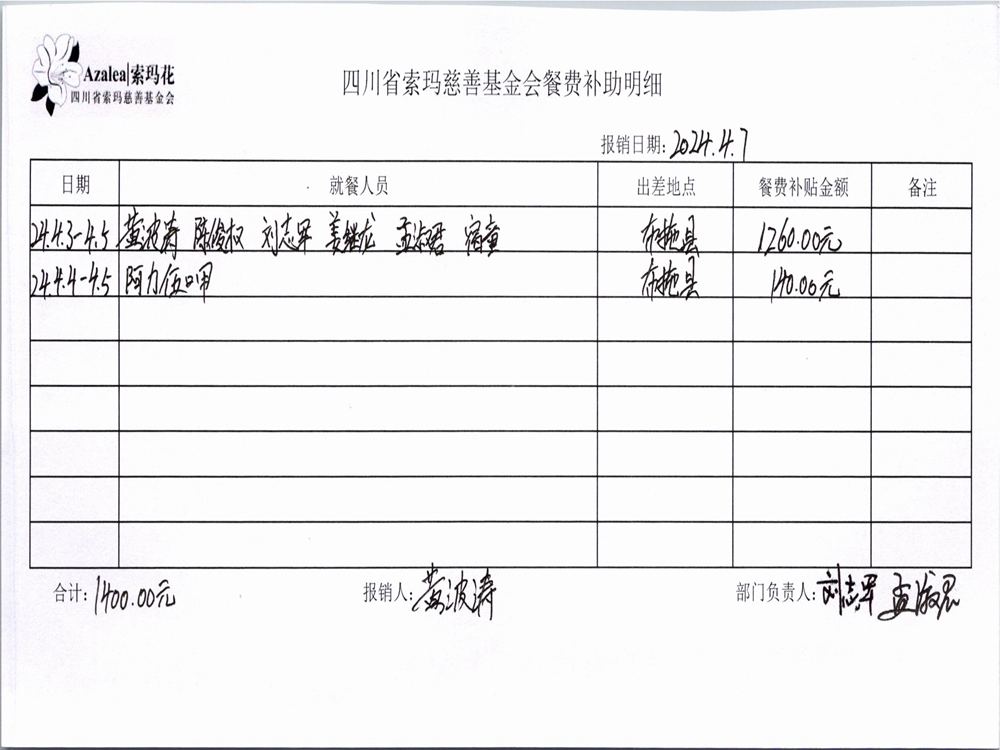 Azalea|索玛花
四川省索玛慈善基金会
四川省索玛慈善基金会餐费补助明细
报销日期: 2024.4.7
日期 就餐人员 出差地点 餐费补贴金额 备注
24.4.3-4.5 黄波涛 陈俊权 刘志军 姜继龙 孟淑君 宿童 布拖县 1260.00元
24.4.4-4.5 阿力伍呷 布拖县 140.00元
合计: 1400.00元 报销人: 黄波涛 部门负责人: 刘志军 孟淑君